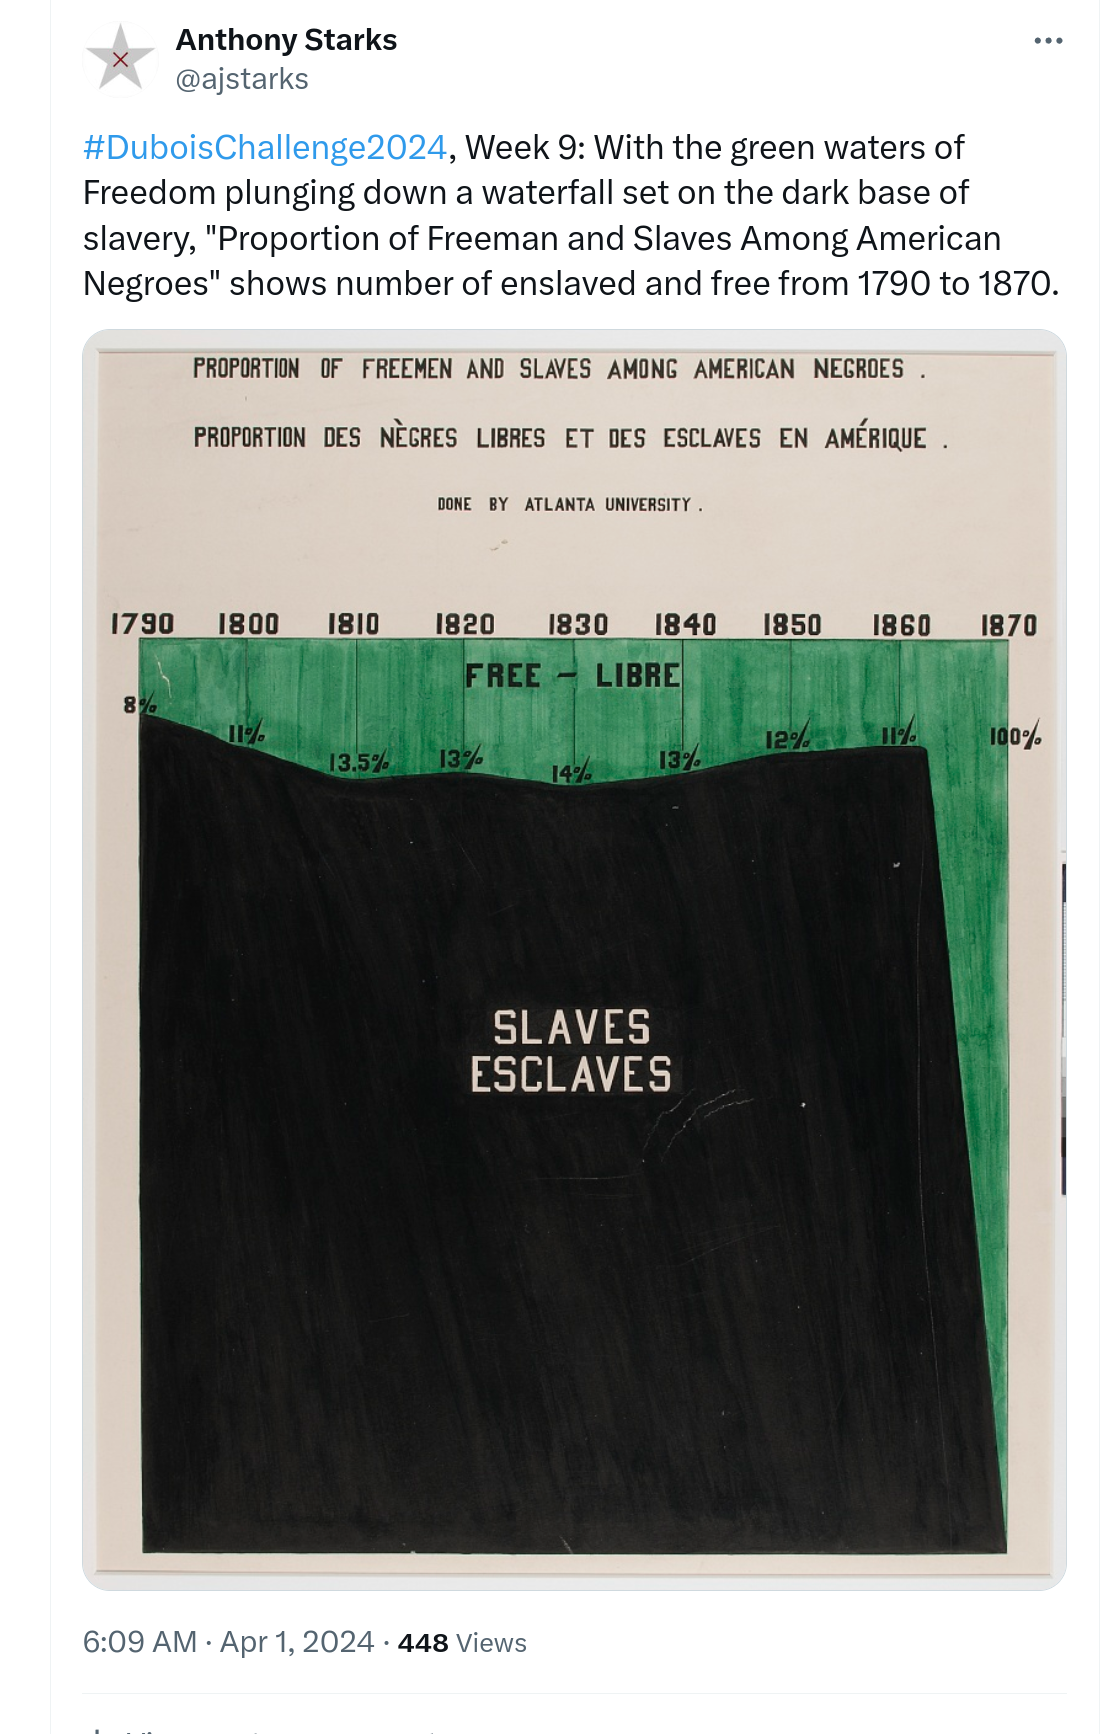 Anthony Starks
@ajstarks
#DuboisChallenge2024, Week 9: With the green waters of
Freedom plunging down a waterfall set on the dark base of
slavery, "Proportion of Freeman and Slaves Among American
Negroes" shows number of enslaved and free from 1790 to 1870.
PROPORTION OF FREEMEN AND SLAVES AMONG AMERICAN NEGROES .
PROPORTION DES NÈGRES LIBRES ET DES ESCLAVES EN AMÉRIQUE .
DONE BY ATLANTA UNIVERSITY .
1790 1800 1810 1820 1830 1840 1850 1860 1870
FREE – LIBRE
8% 11% 13.5% 13% 14% 13% 12% 11% 100%
SLAVES
ESCLAVES
6:09 AM · Apr 1, 2024 · 448 Views